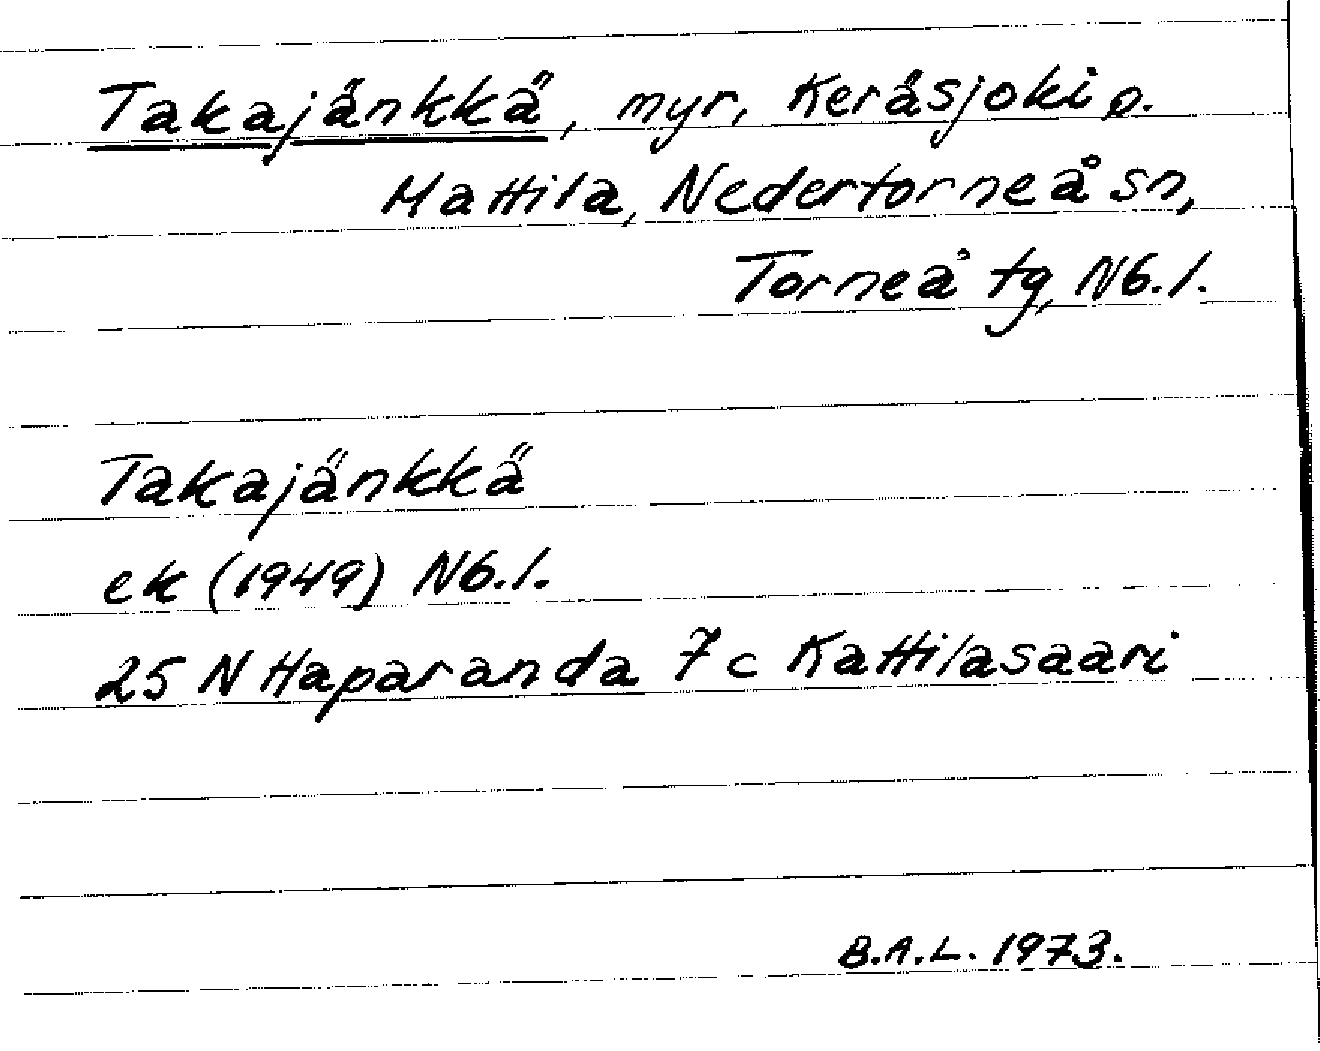 Takajänkkä, myr, Keräsjoki o.
Mattila, Nedertorneå sn,
Torneå tg, Nb.l.
Takajänkkä
ek (1949) Nb.l.
25 N Haparanda 7c Kattilasaari
B.A.L. 1973.